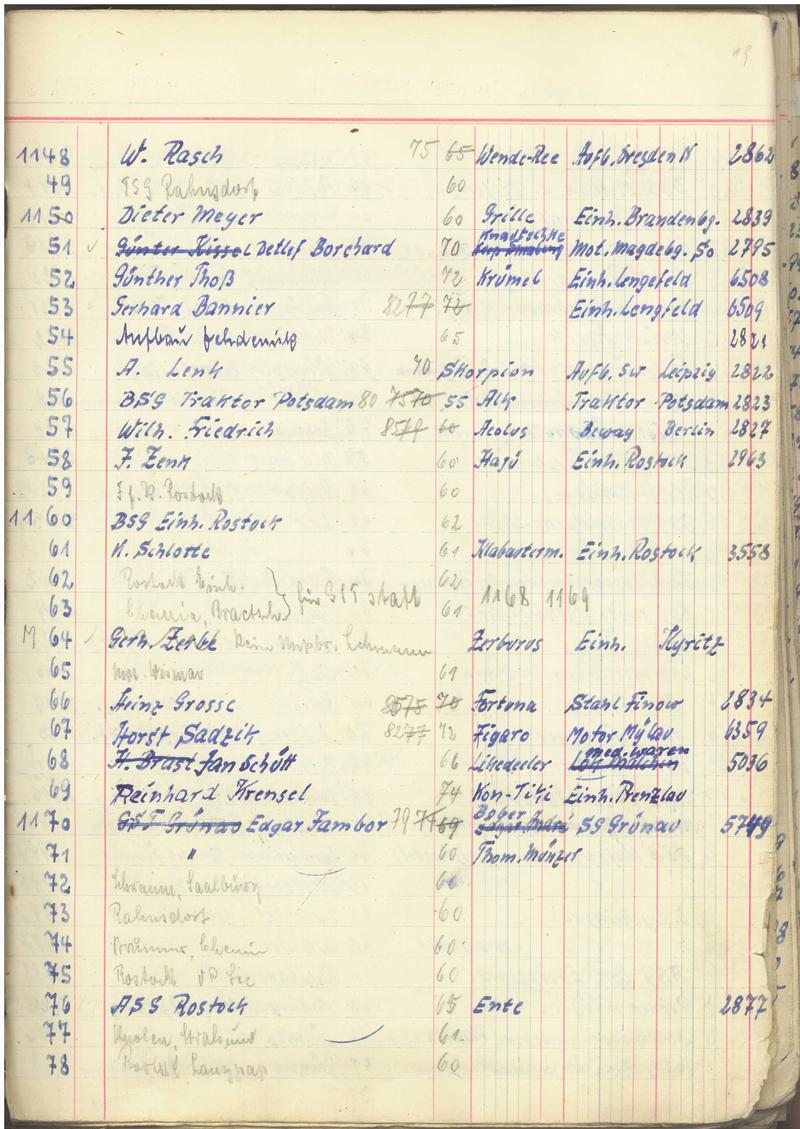 19
1148 W. Rasch 75 65 Wende-Ree Aufb. Dresden N 2862
49 TSG Rahnsdorf 60
1150 Dieter Meyer 60 Grille Einh. Brandenbg. 2839
51 Günter Kissel Detlef Borchard 70 Mot. Magdebg. So 2795
52 Günther Thoß 72 Krümel Einh. Lengefeld 6508
53 Gerhard Bannier 8277 72 Einh. Lengfeld 6509
54 Aufbau 65 2821
55 A. Lenk 70 Skorpion Aufb. Sw Leipzig 2822
56 BSG Traktor Potsdam 80 7570 55 Alk Traktor Potsdam 2823
57 Wilh. Friedrich 8579 60 Aeolus Beway Berlin 2827
58 F. Zenk 60 Hajü Einh. Rostock 2963
59 Rostock 60
1160 BSG Einh. Rostock 62
61 N. Schlotte 61 Klabauterm. Einh. Rostock 3558
62 Rostock Einh. 62
für GST 1168 1169
63 Chemie, 61
M 64 Gerh. Zerbe kein Lehmann Zerburus Einh. Kyritz
65 Wismar 61
66 Heinz Grosse 8575 70 Fortuna Stahl Finow 2834
67 Horst Sadzik 8277 72 Figaro Motor Mylau 6359
med. waren
68 H. Brast Jan Schütt 66 Likedeeler 5036
69 Reinhard Krensel 74 Kon-Tiki Einh. Prenzlau
1170 GST Grünau Edgar Jambor 79 74 69 Edgar André SG Grünau 5749
71 " 60 Thom. Münzer
72 Saalburg 60
73 Rahnsdorf 60
74 Chemie 60
75 Rostock 60
76 ASG Rostock 65 Ente 2877
77 Stralsund 61
78 60